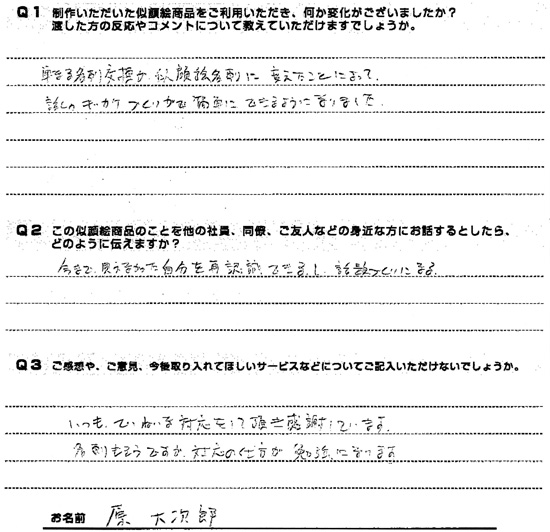 Q1 制作いただいた似顔絵商品をご利用いただき、何か変化がございましたか？
渡した方の反応やコメントについて教えていただけますでしょうか。
単なる名刺交換が、似顔絵名刺に変えたことによって、
話しのキッカケづくりが簡単にできるようになりました。
Q2 この似顔絵商品のことを他の社員、同僚、ご友人などの身近な方にお話するとしたら、
どのように伝えますか？
今まで、見えなかった自分を再認識できるし、話題づくりになる。
Q3 ご感想や、ご意見、今後取り入れてほしいサービスなどについてご記入いただけないでしょうか。
いつも、ていねいな対応をして頂き感謝しています。
名刺もそうですが、対応の仕方が勉強になります
お名前 原 大次郎